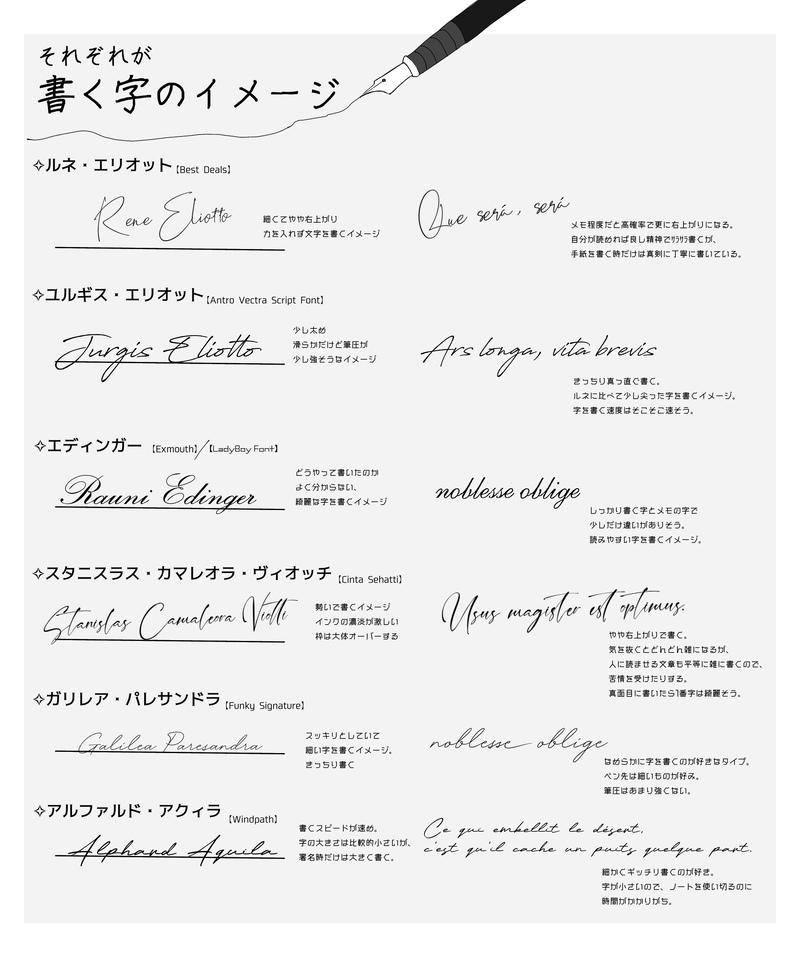 それぞれが
書く字のイメージ
✧ルネ・エリオット【Best Deals】
Rene Eliotto
細くてやや右上がり
力を入れず文字を書くイメージ
Que será, será
メモ程度だと高確率で更に右上がりになる。
自分が読めれば良し精神でサラサラ書くが、
手紙を書く時だけは真剣に丁寧に書いている。
✧ユルギス・エリオット【Antro Vectra Script Font】
Jurgis Eliotto
少し太め
滑らかだけど筆圧が
少し強そうなイメージ
Ars longa, vita brevis
きっちり真っ直ぐ書く。
ルネに比べて少し尖った字を書くイメージ。
字を書く速度はそこそこ速そう。
✧エディンガー【Exmouth】/【LadyBoy Font】
Rauni Edinger
どうやって書いたのか
よく分からない、
綺麗な字を書くイメージ
noblesse oblige
しっかり書く字とメモの字で
少しだけ違いがありそう。
読みやすい字を書くイメージ。
✧スタニスラス・カマレオラ・ヴィオッチ【Cinta Sehatti】
Stanislas Camaleora Viotti
勢いで書くイメージ
インクの濃淡が激しい
枠は大体オーバーする
Usus magister est optimus.
やや右上がりで書く。
気を抜くとどんどん雑になるが、
人に読ませる文章も平等に雑に書くので、
苦情を受けたりする。
真面目に書いたら1番字は綺麗そう。
✧ガリレア・パレサンドラ【Funky Signature】
Galilea Paresandra
スッキリとしていて
細い字を書くイメージ。
きっちり書く
noblesse oblige
なめらかに字を書くのが好きなタイプ。
ペン先は細いものが好み。
筆圧はあまり強くない。
✧アルファルド・アクィラ【Windpath】
Alphard Aquila
書くスピードが速め。
字の大きさは比較的小さいが、
署名時だけは大きく書く。
Ce qui embellit le désert,
c'est qu'il cache un puits quelque part.
細かくギッチリ書くのが好き。
字が小さいので、ノートを使い切るのに
時間がかかりがち。